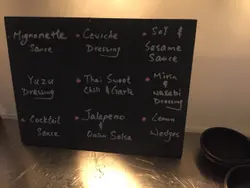 Mignonette
Sauce
Ceviche
Dressing
Soy &
Sesame
Sauce
Yuzu
Dressing
Thai Sweet
Chili & Garlic
Mirin
& Wasabi
Dressing
Cocktail
Sauce
Jalapeno
Salsa
Lemon
Wedges